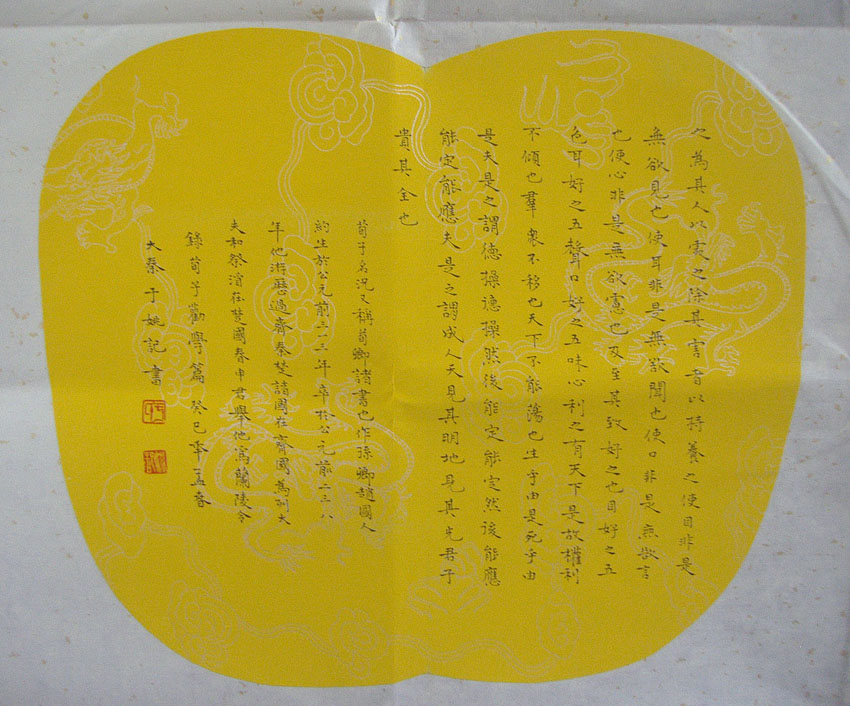 之為其人以處之除其害者以持養之使目非是
無欲見也使耳非是無欲聞也使口非是無欲言
也使心非是無欲慮也及至其致好之也目好之五
色耳好之五聲口好之五味心利之有天下是故權利
不傾也羣衆不移也天下不能蕩也生乎由是死乎由
是夫是之謂德操德操然後能定能定然後能應
能定能應夫是之謂成人天見其明地見其光君子
貴其全也
荀子名況又稱荀卿諸書也作孫卿趙國人
約生於公元前三一三年卒於公元前二三八
年他游歷過齊秦楚諸國在齊國為列大
夫和祭酒在楚國春申君舉他為蘭陵令
錄荀子勸學篇 癸巳年孟春
大秦于姚記書